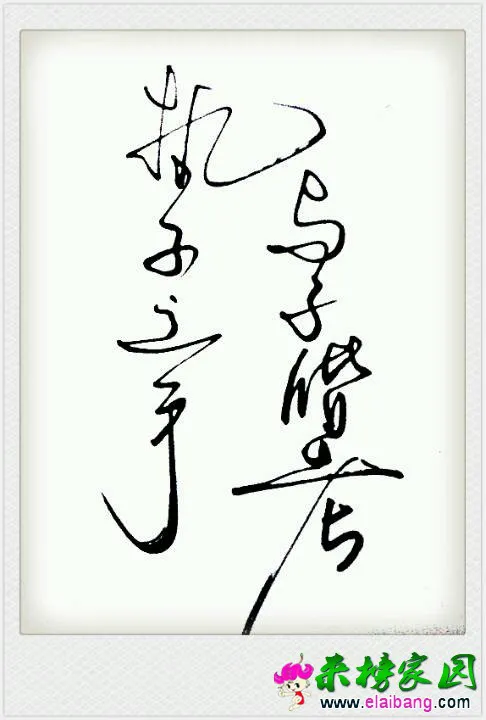 执子之手
与子偕老
来榜家园
www.elaibang.com